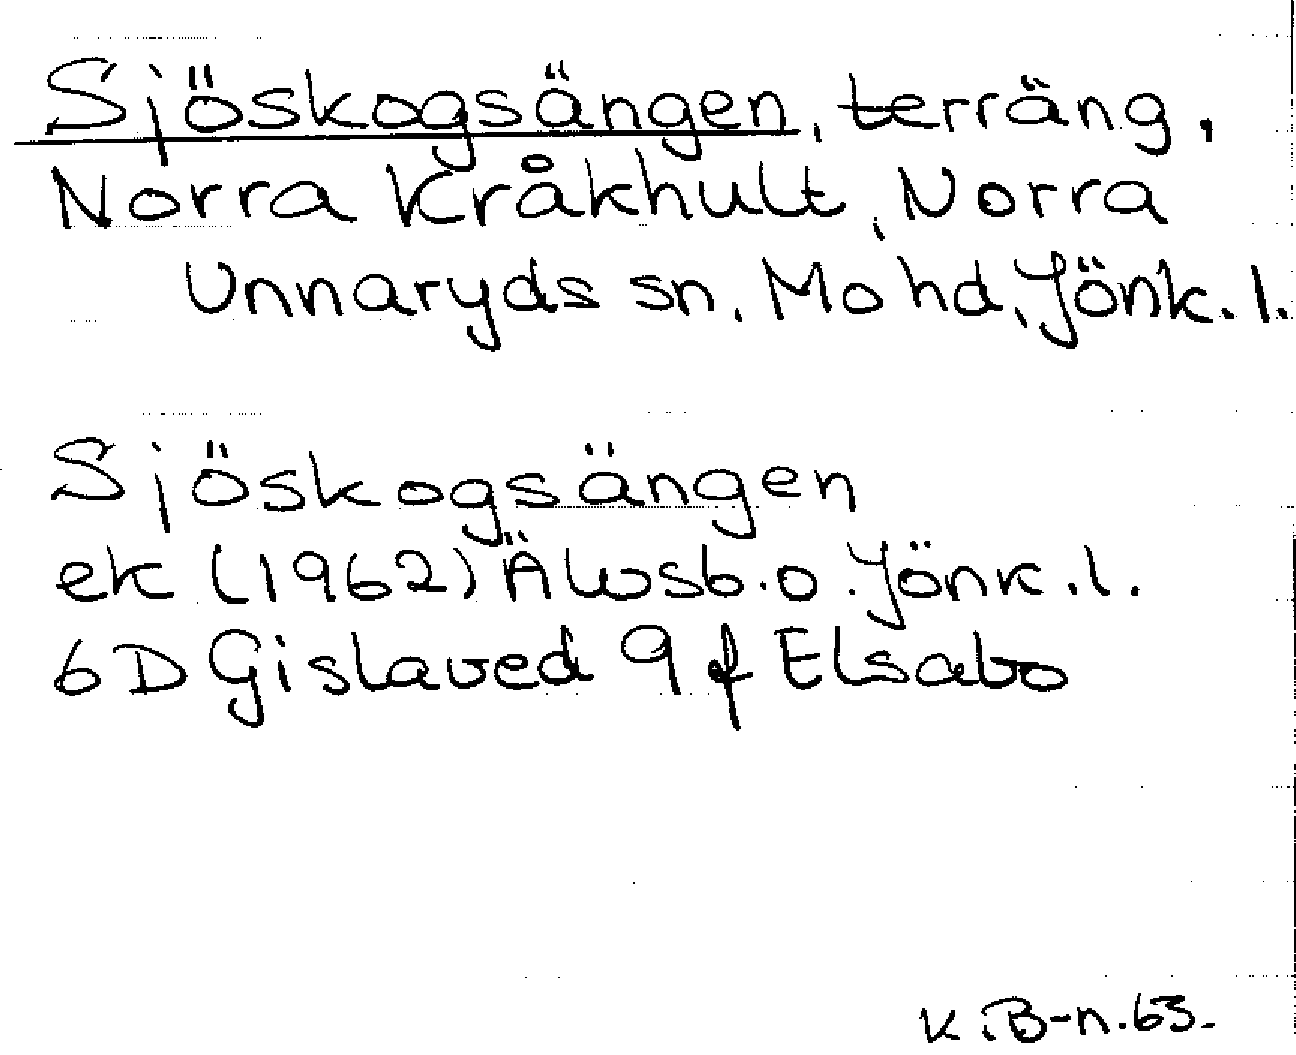 Sjöskogsängen, terräng,
Norra Kråkhult, Norra
Unnaryds sn, Mo hd, Jönk. l.
Sjöskogsängen
ek (1962) Älvsb. o. Jönk. l.
6D Gislaved 9 f Elsabo
K. B-n. 63.